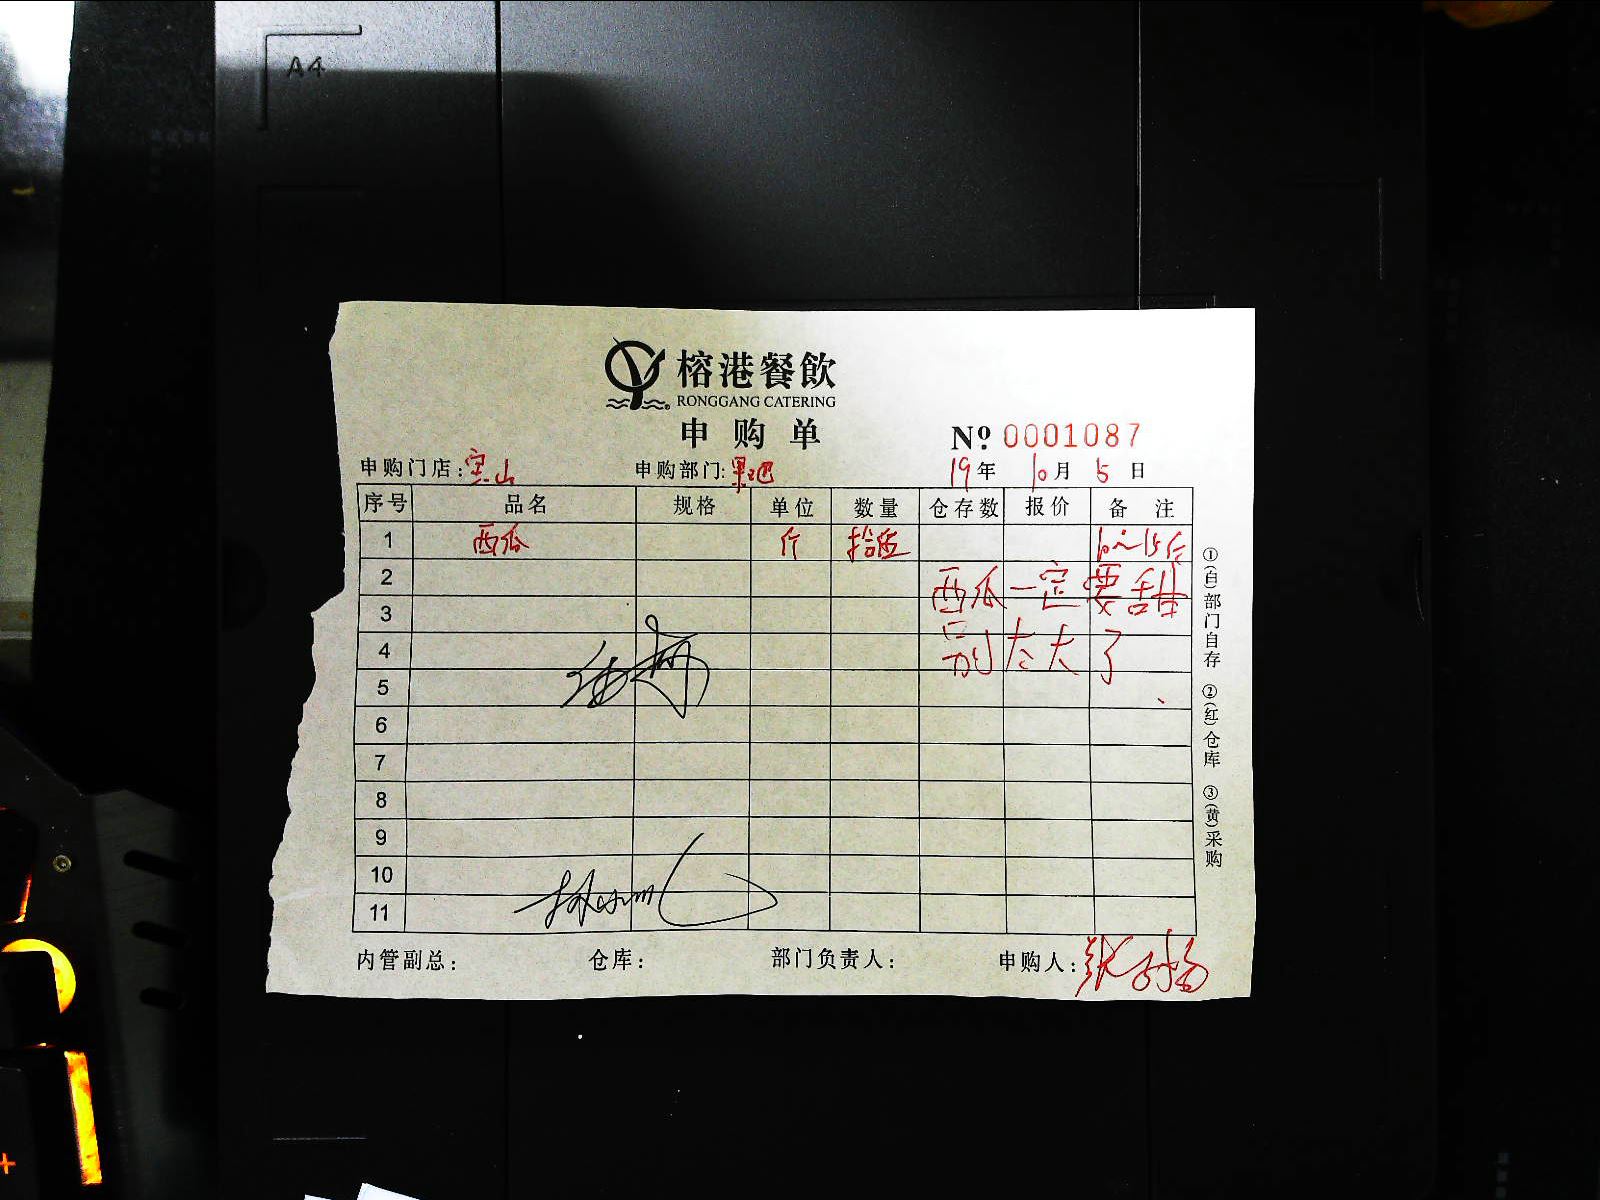 A4
榕港餐飲
RONGGANG CATERING
申购单
№ 0001087
申购门店:宝山 申购部门:果吧 19年 10月 5日
序号 品名 规格 单位 数量 仓存数 报价 备 注
1 西瓜 斤 拾伍 10~15斤
2 西瓜一定要甜
3
4 别太大了
5
6
7
8
9
10
11
内管副总: 仓库: 部门负责人: 申购人:
①(白)部门自存 ②(红)仓库 ③(黄)采购